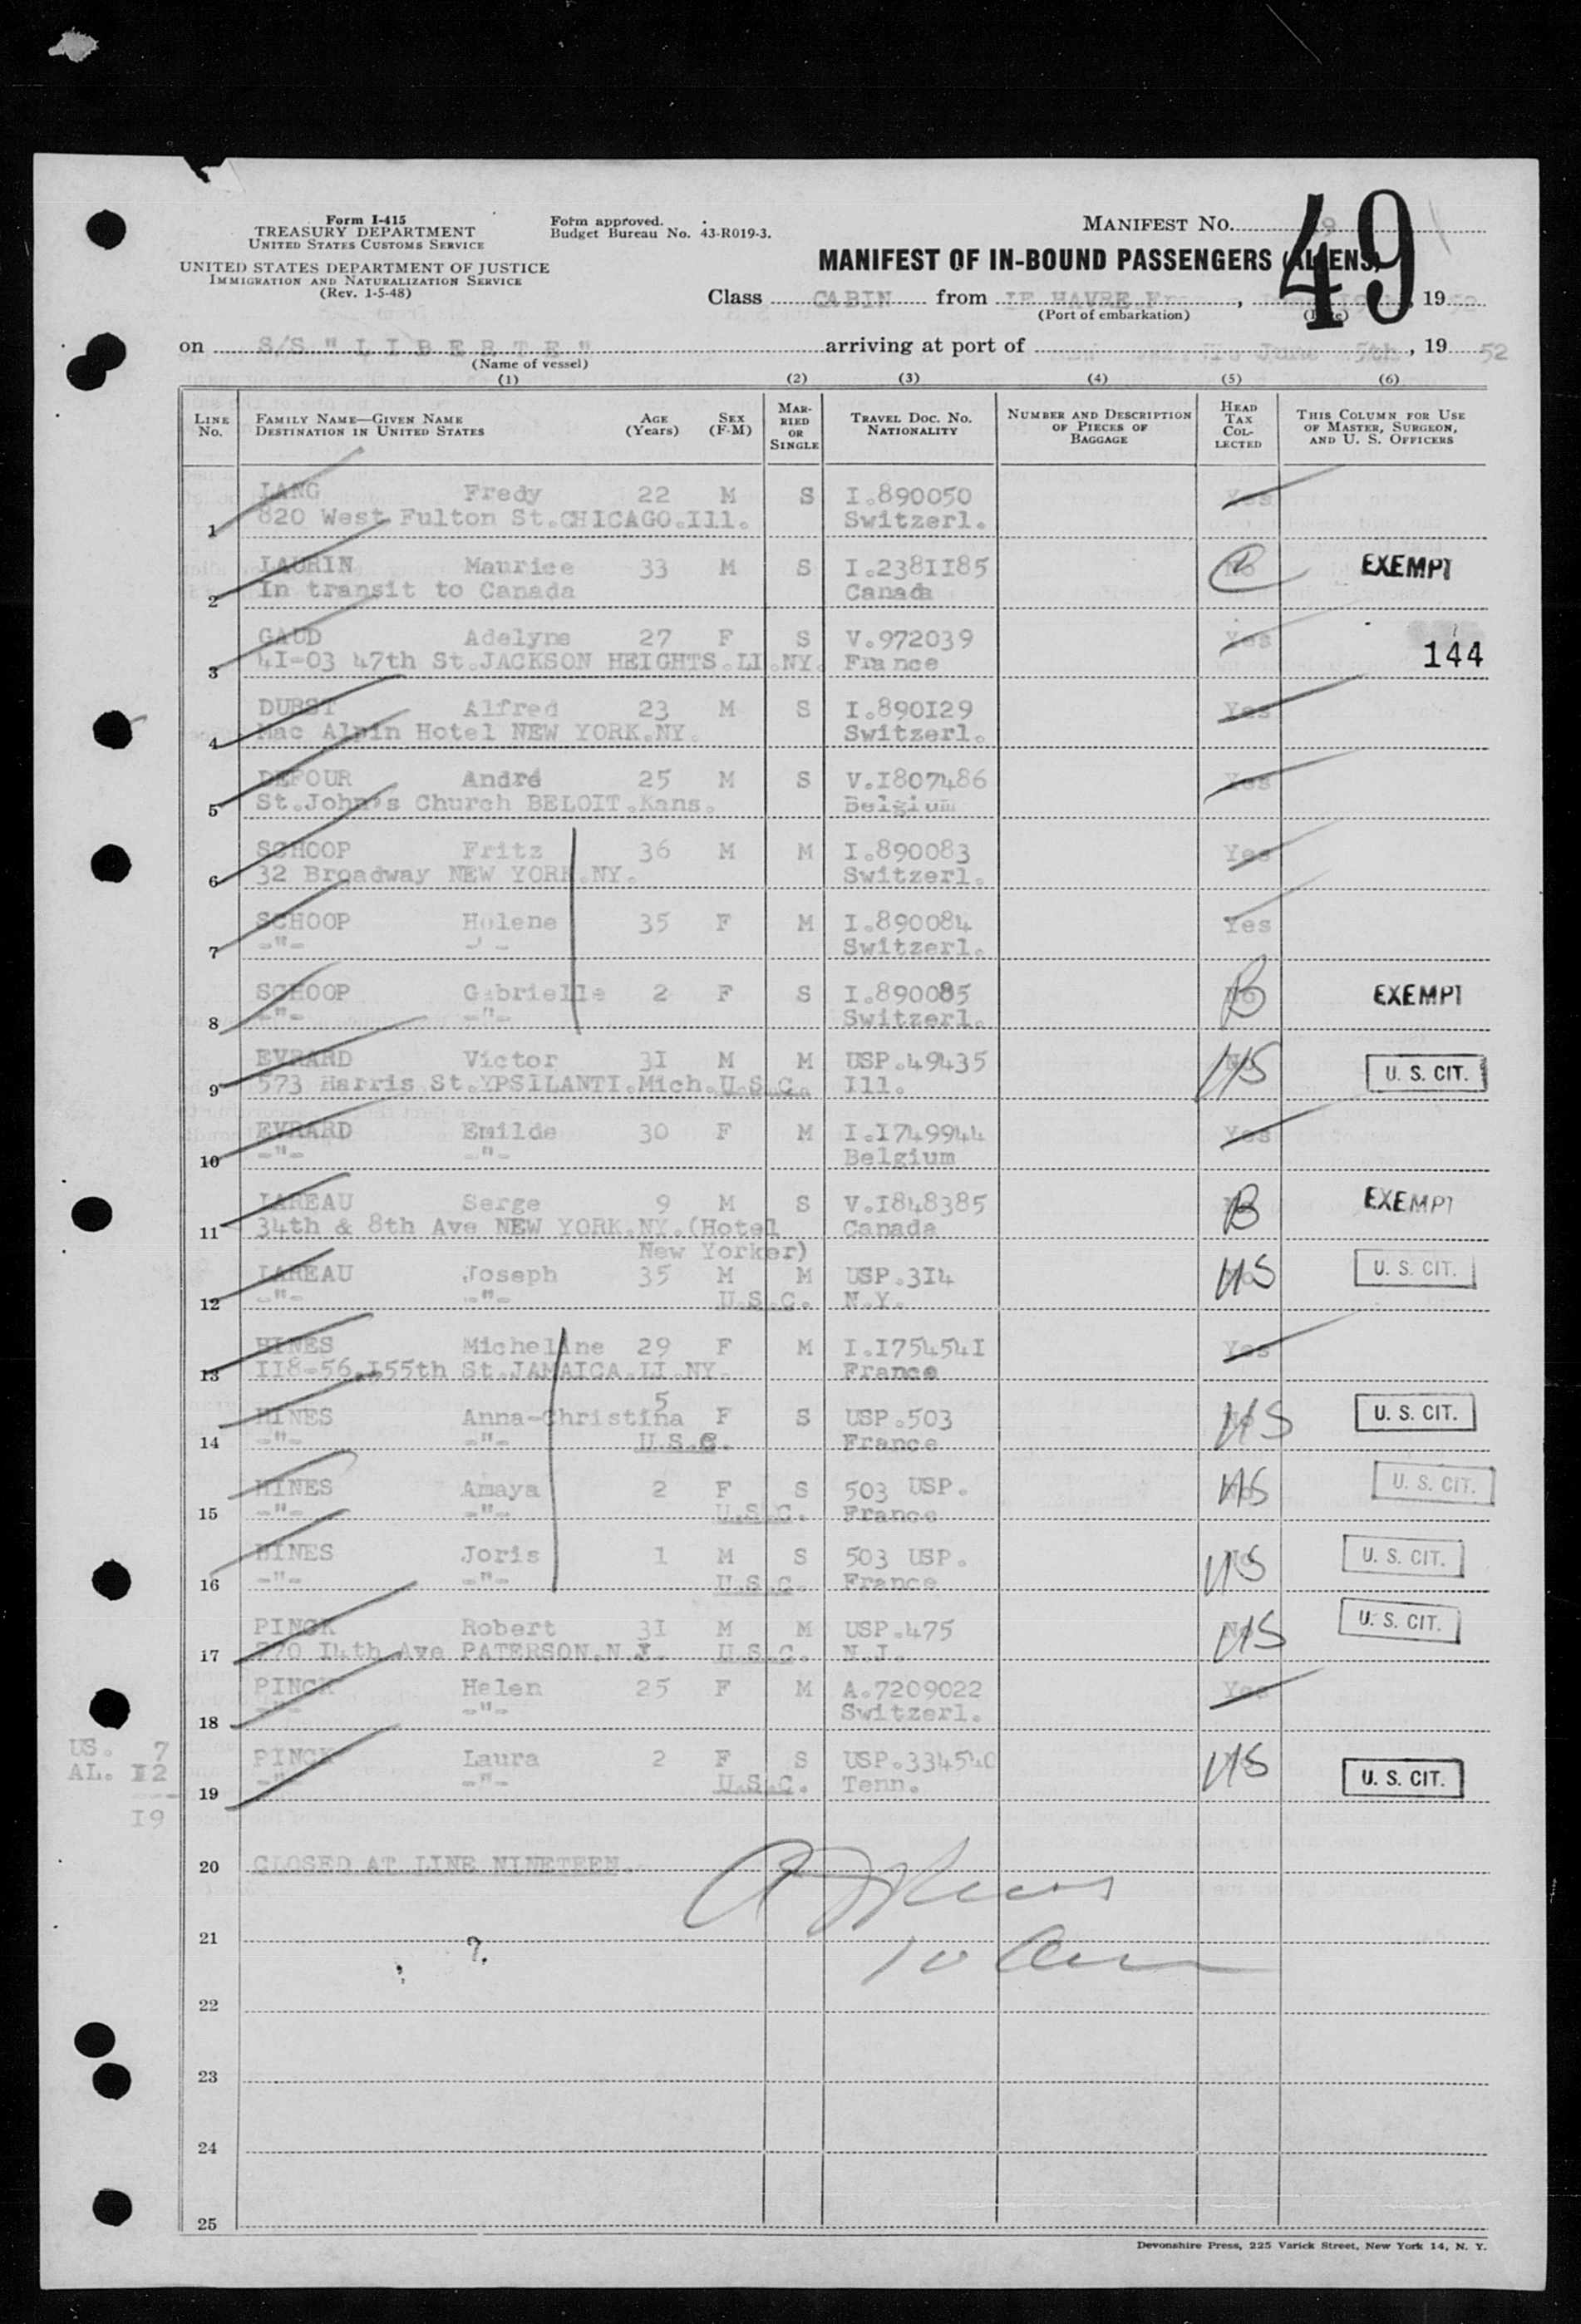 Form I-415
TREASURY DEPARTMENT
UNITED STATES CUSTOMS SERVICE
UNITED STATES DEPARTMENT OF JUSTICE
IMMIGRATION AND NATURALIZATION SERVICE
(Rev. 1-5-48)
Form approved.
Budget Bureau No. 43-R019-3.
MANIFEST NO.
49
MANIFEST OF IN-BOUND PASSENGERS (ALIENS)
Class CABIN from LE HAVRE , 19
(Port of embarkation) (Date)
on S/S "LIBERTE" arriving at port of June 5th, 19 52
(Name of vessel)
(1) (2) (3) (4) (5) (6)
LINE No. FAMILY NAME—GIVEN NAME DESTINATION IN UNITED STATES AGE (Years) SEX (F-M) MARRIED OR SINGLE TRAVEL DOC. NO. NATIONALITY NUMBER AND DESCRIPTION OF PIECES OF BAGGAGE HEAD TAX COLLECTED THIS COLUMN FOR USE OF MASTER, SURGEON, AND U. S. OFFICERS
LANG Fredy 22 M S I.890050 Yes
1 820 West Fulton St.CHICAGO.Ill. Switzerl.
LAURIN Maurice 33 M S I.2381185 No EXEMPT
2 In transit to Canada Canada
GAUD Adelyne 27 F S V.972039 Yes 144
3 41-03 47th St.JACKSON HEIGHTS.LI.NY. France
DURST Alfred 23 M S I.890129 Yes
4 Mac Alpin Hotel NEW YORK.NY. Switzerl.
DEFOUR André 25 M S V.1807486 Yes
5 St.John's Church BELOIT.Kans. Belgium
SCHOOP Fritz 36 M M I.890083 Yes
6 32 Broadway NEW YORK.NY. Switzerl.
SCHOOP Helene 35 F M I.890084 Yes
7 -"- Switzerl.
SCHOOP Gabrielle 2 F S I.890085 EXEMPT
8 -"- -"- Switzerl.
EVRARD Victor 31 M M USP.49435 US U. S. CIT.
9 573 Harris St.YPSILANTI.Mich.U.S.C. Ill.
EVRARD Emilde 30 F M I.1749944 Yes
10 -"- -"- Belgium
LAREAU Serge 9 M S V.1848385 EXEMPT
11 34th & 8th Ave NEW YORK.NY.(Hotel Canada
New Yorker)
LAREAU Joseph 35 M M USP.314 US U. S. CIT.
12 -"- -"- U.S.C. N.Y.
HINES Micheline 29 F M I.1754541 Yes
13 118-56.155th St.JAMAICA.LI.NY. France
HINES Anna-Christina 5 F S USP.503 US U. S. CIT.
14 -"- -"- U.S.C. France
HINES Amaya 2 F S 503 USP. US U. S. CIT.
15 -"- -"- U.S.C. France
HINES Joris 1 M S 503 USP. US U. S. CIT.
16 -"- -"- U.S.C. France
PINCK Robert 31 M M USP.475 US U. S. CIT.
17 270 14th Ave PATERSON.N.J. U.S.C. N.J.
PINCK Helen 25 F M A.7209022 Yes
18 -"- -"- Switzerl.
US. 7 PINCK Laura 2 F S USP.334540 US U. S. CIT.
AL. 12 19 -"- -"- U.S.C. Tenn.
19
20 CLOSED AT LINE NINETEEN.-
21
22
23
24
25
Devonshire Press, 225 Varick Street, New York 14, N. Y.